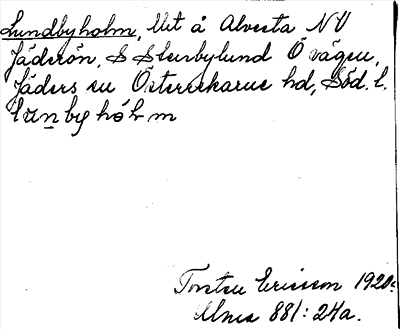 Lundbyholm, Utt å Alvesta NV
Jäderön, S Stenbylund Ö vägen,
Jäders sn Österrekarne hd, Söd. l.
Torsten Ericson 1920.
881:24a.